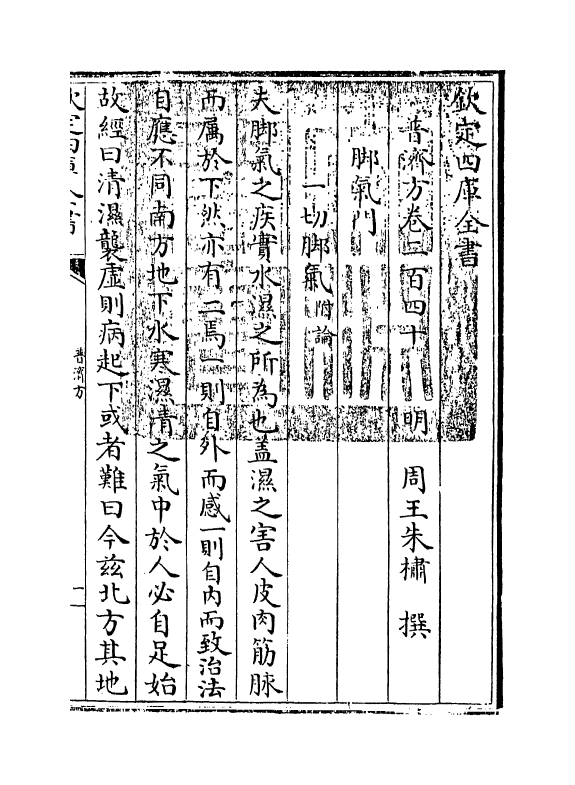 欽定四庫全書
普濟方卷二百四十　明　周王朱橚　撰
脚氣門
一切脚氣附論
夫脚氣之疾實水濕之所為也蓋濕之害人皮肉筋脉
而属於下然亦有二焉一則自外而感一則自内而致治法
自應不同南方地下水寒濕清之氣中於人必自足始
故經曰清濕襲虚則病起下或者難曰今兹北方其地
普濟方